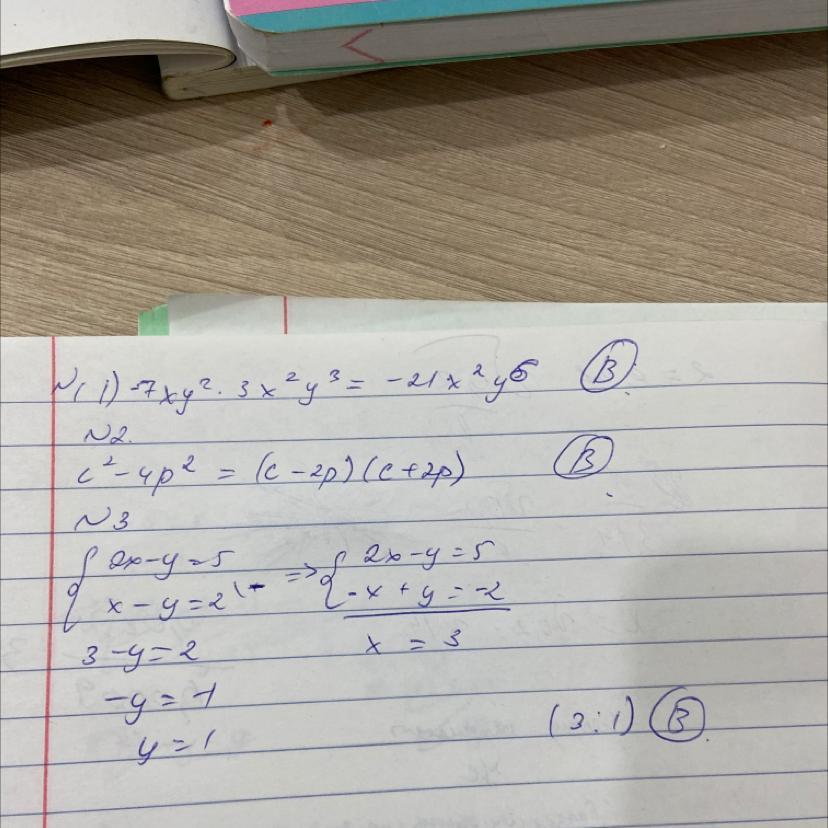 N1 1) -7xy² · 3x²y³ = -21x²y⁵ В
N2.
c² - 4p² = (c - 2p)(c + 2p) В
N3
{ 2x - y = 5 => { 2x - y = 5
x - y = 2 | - -x + y = -2
3 - y = 2 x = 3
-y = -1
y = 1 (3; 1) В